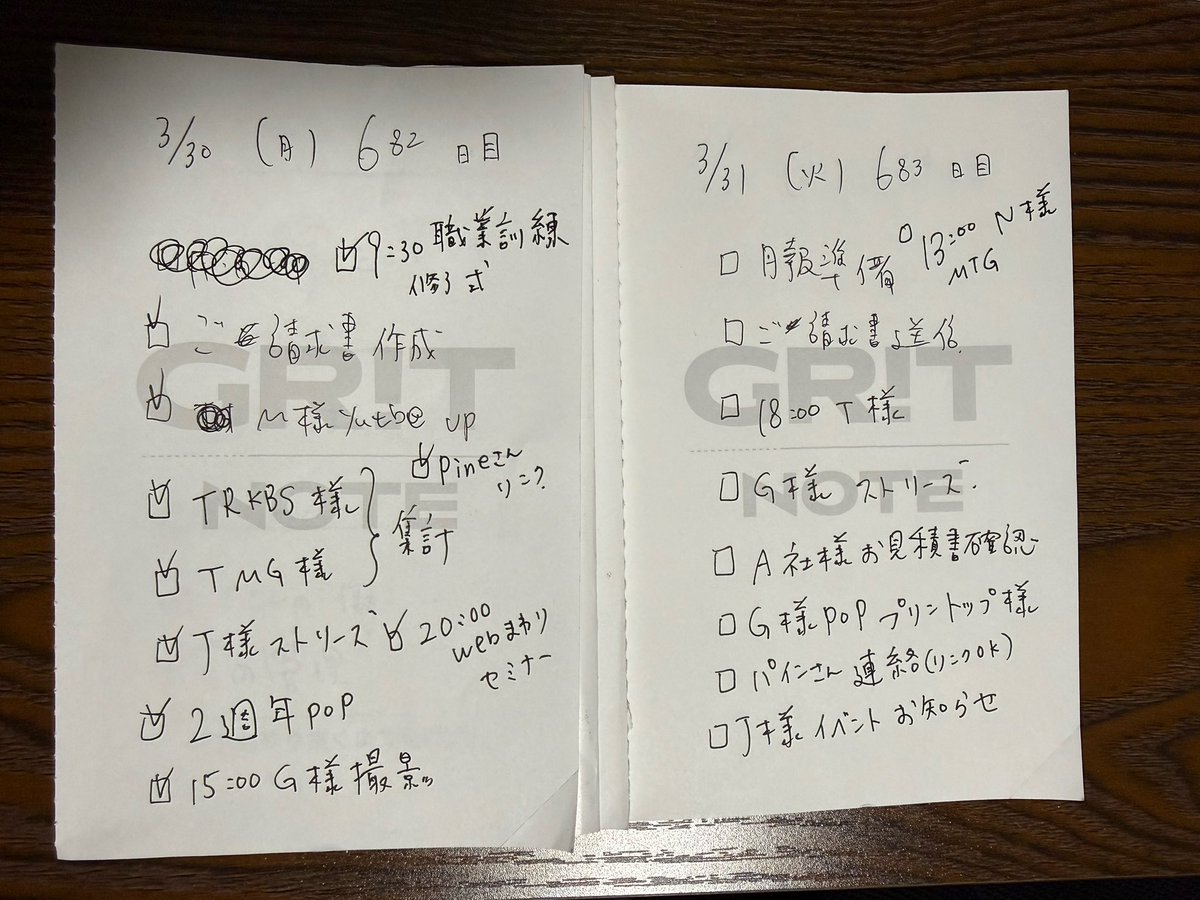 3/30 (月) 682 日目
☑ 9:30 職業訓練
修了式
☑ ご請求書 作成
☑ M様 yutbe up
☑ pineさん
リンク
☑ TRKBS 様
☑ TMG 様
集計
☑ J様 ストリーズ
☑ 20:00
webまわり
セミナー
☑ 2週年 POP
☑ 15:00 G様 撮影
GR!T
NOTE
3/31 (火) 683 日目
□ 月報準備
□ 13:00 N様
MTG
□ ご請求書送信
□ 18:00 T様
□ G様 ストリーズ
□ A社様 お見積書確認
□ G様 POP プリントップ様
□ パインさん 連絡(リンクOK)
□ J様 イベント お知らせ
GR!T
NOTE